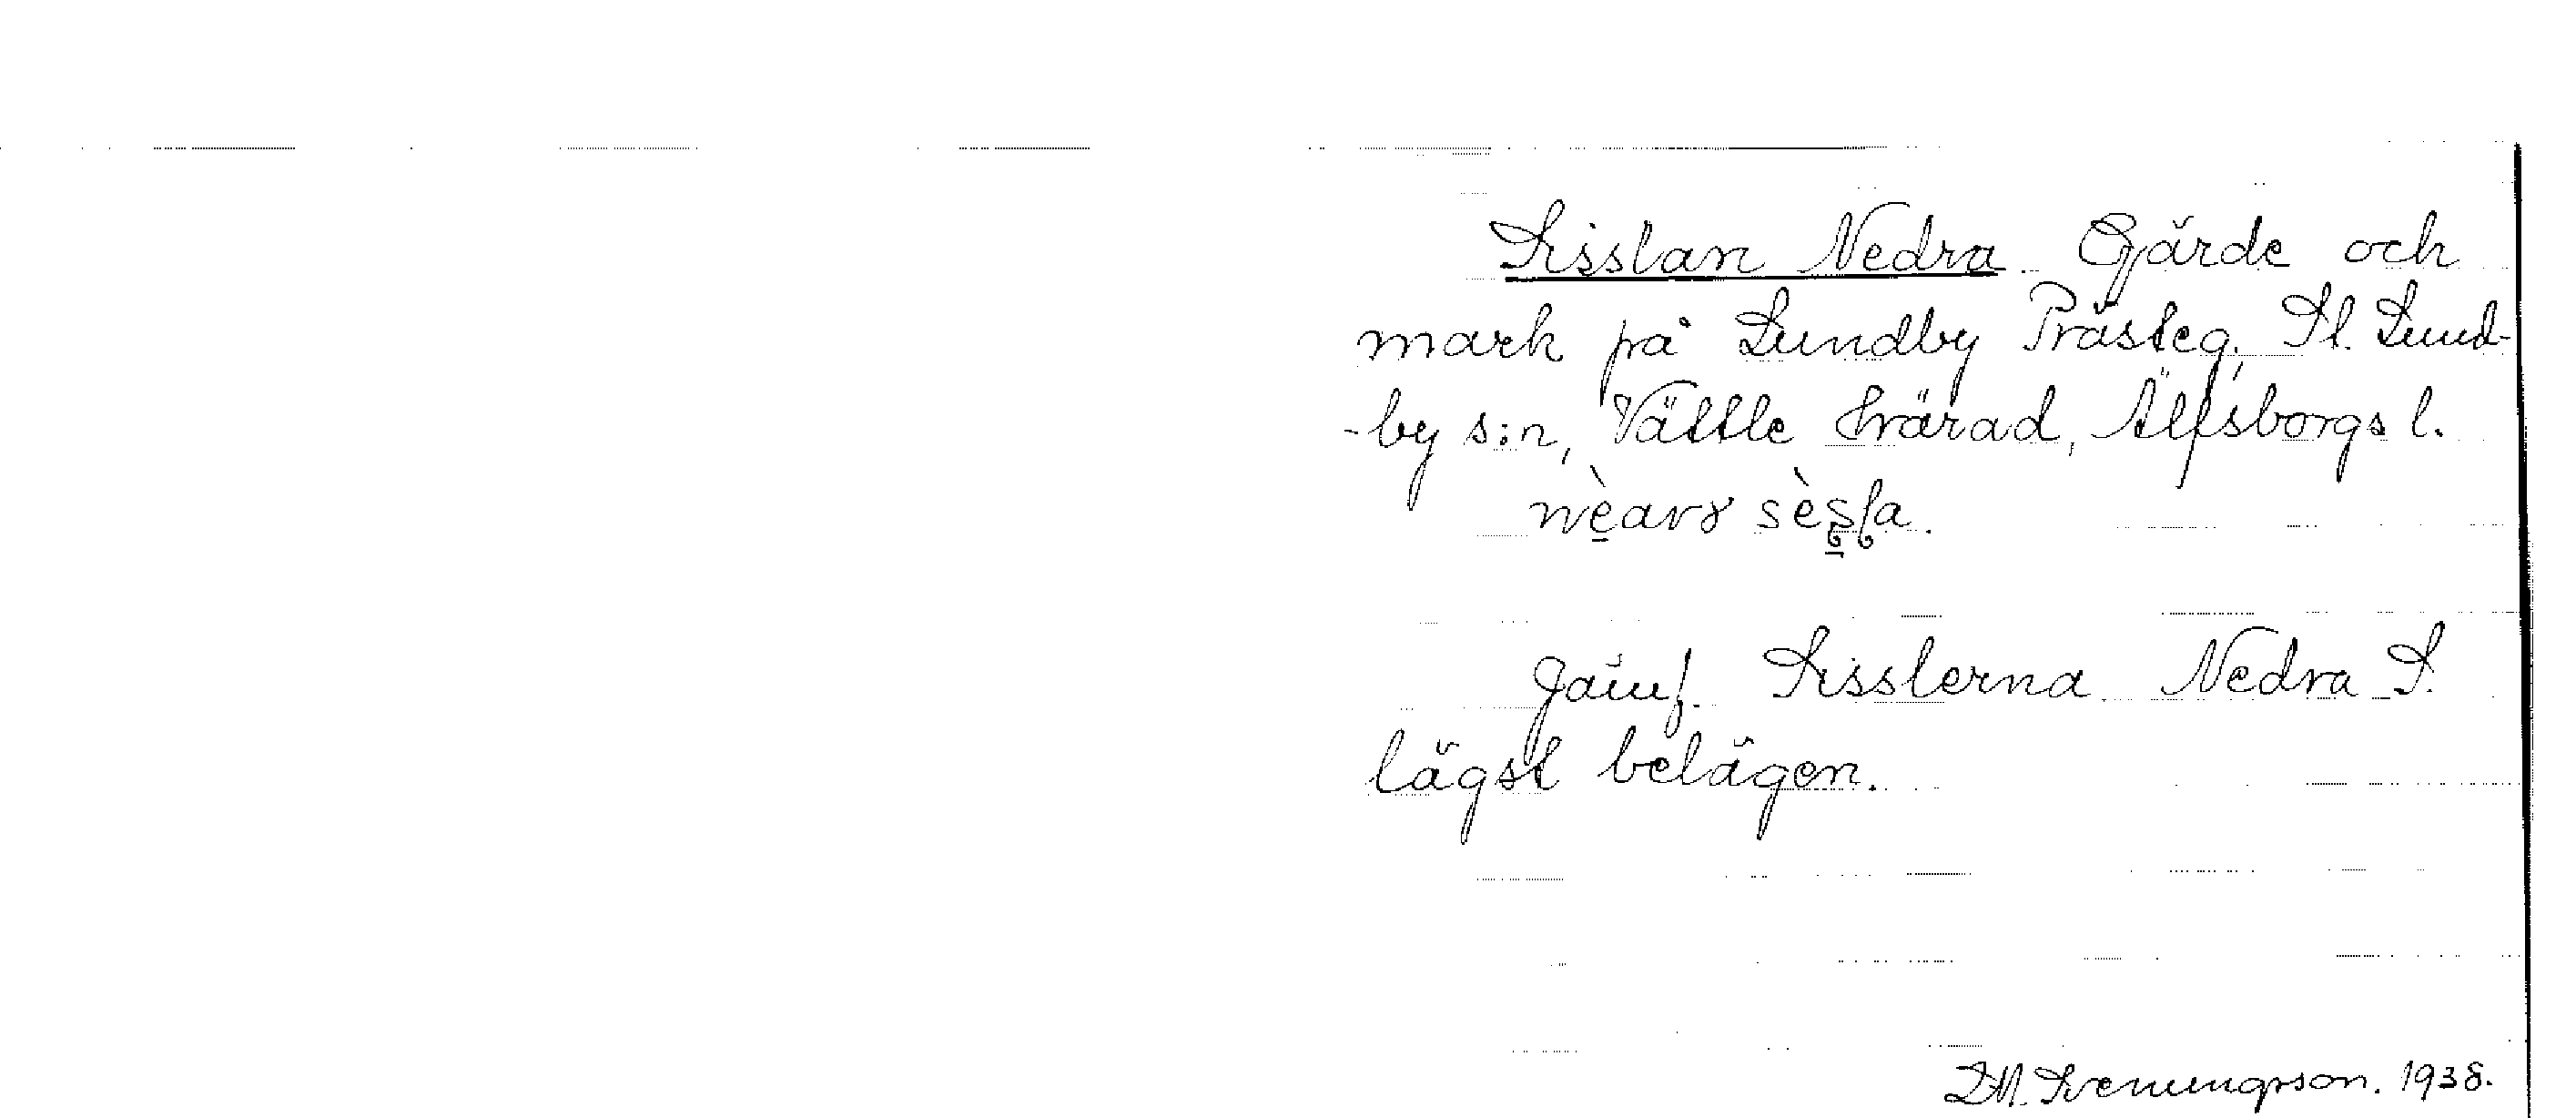 Sisslan Nedra Gärde och
mark på Lundby Prästeg., St. Lund-
-by s:n, Vättle härad, Älfsborgs l.
Jämf. Sisslerna. Nedra S.
lägst belägen.
D.M. Svenungsson. 1938.